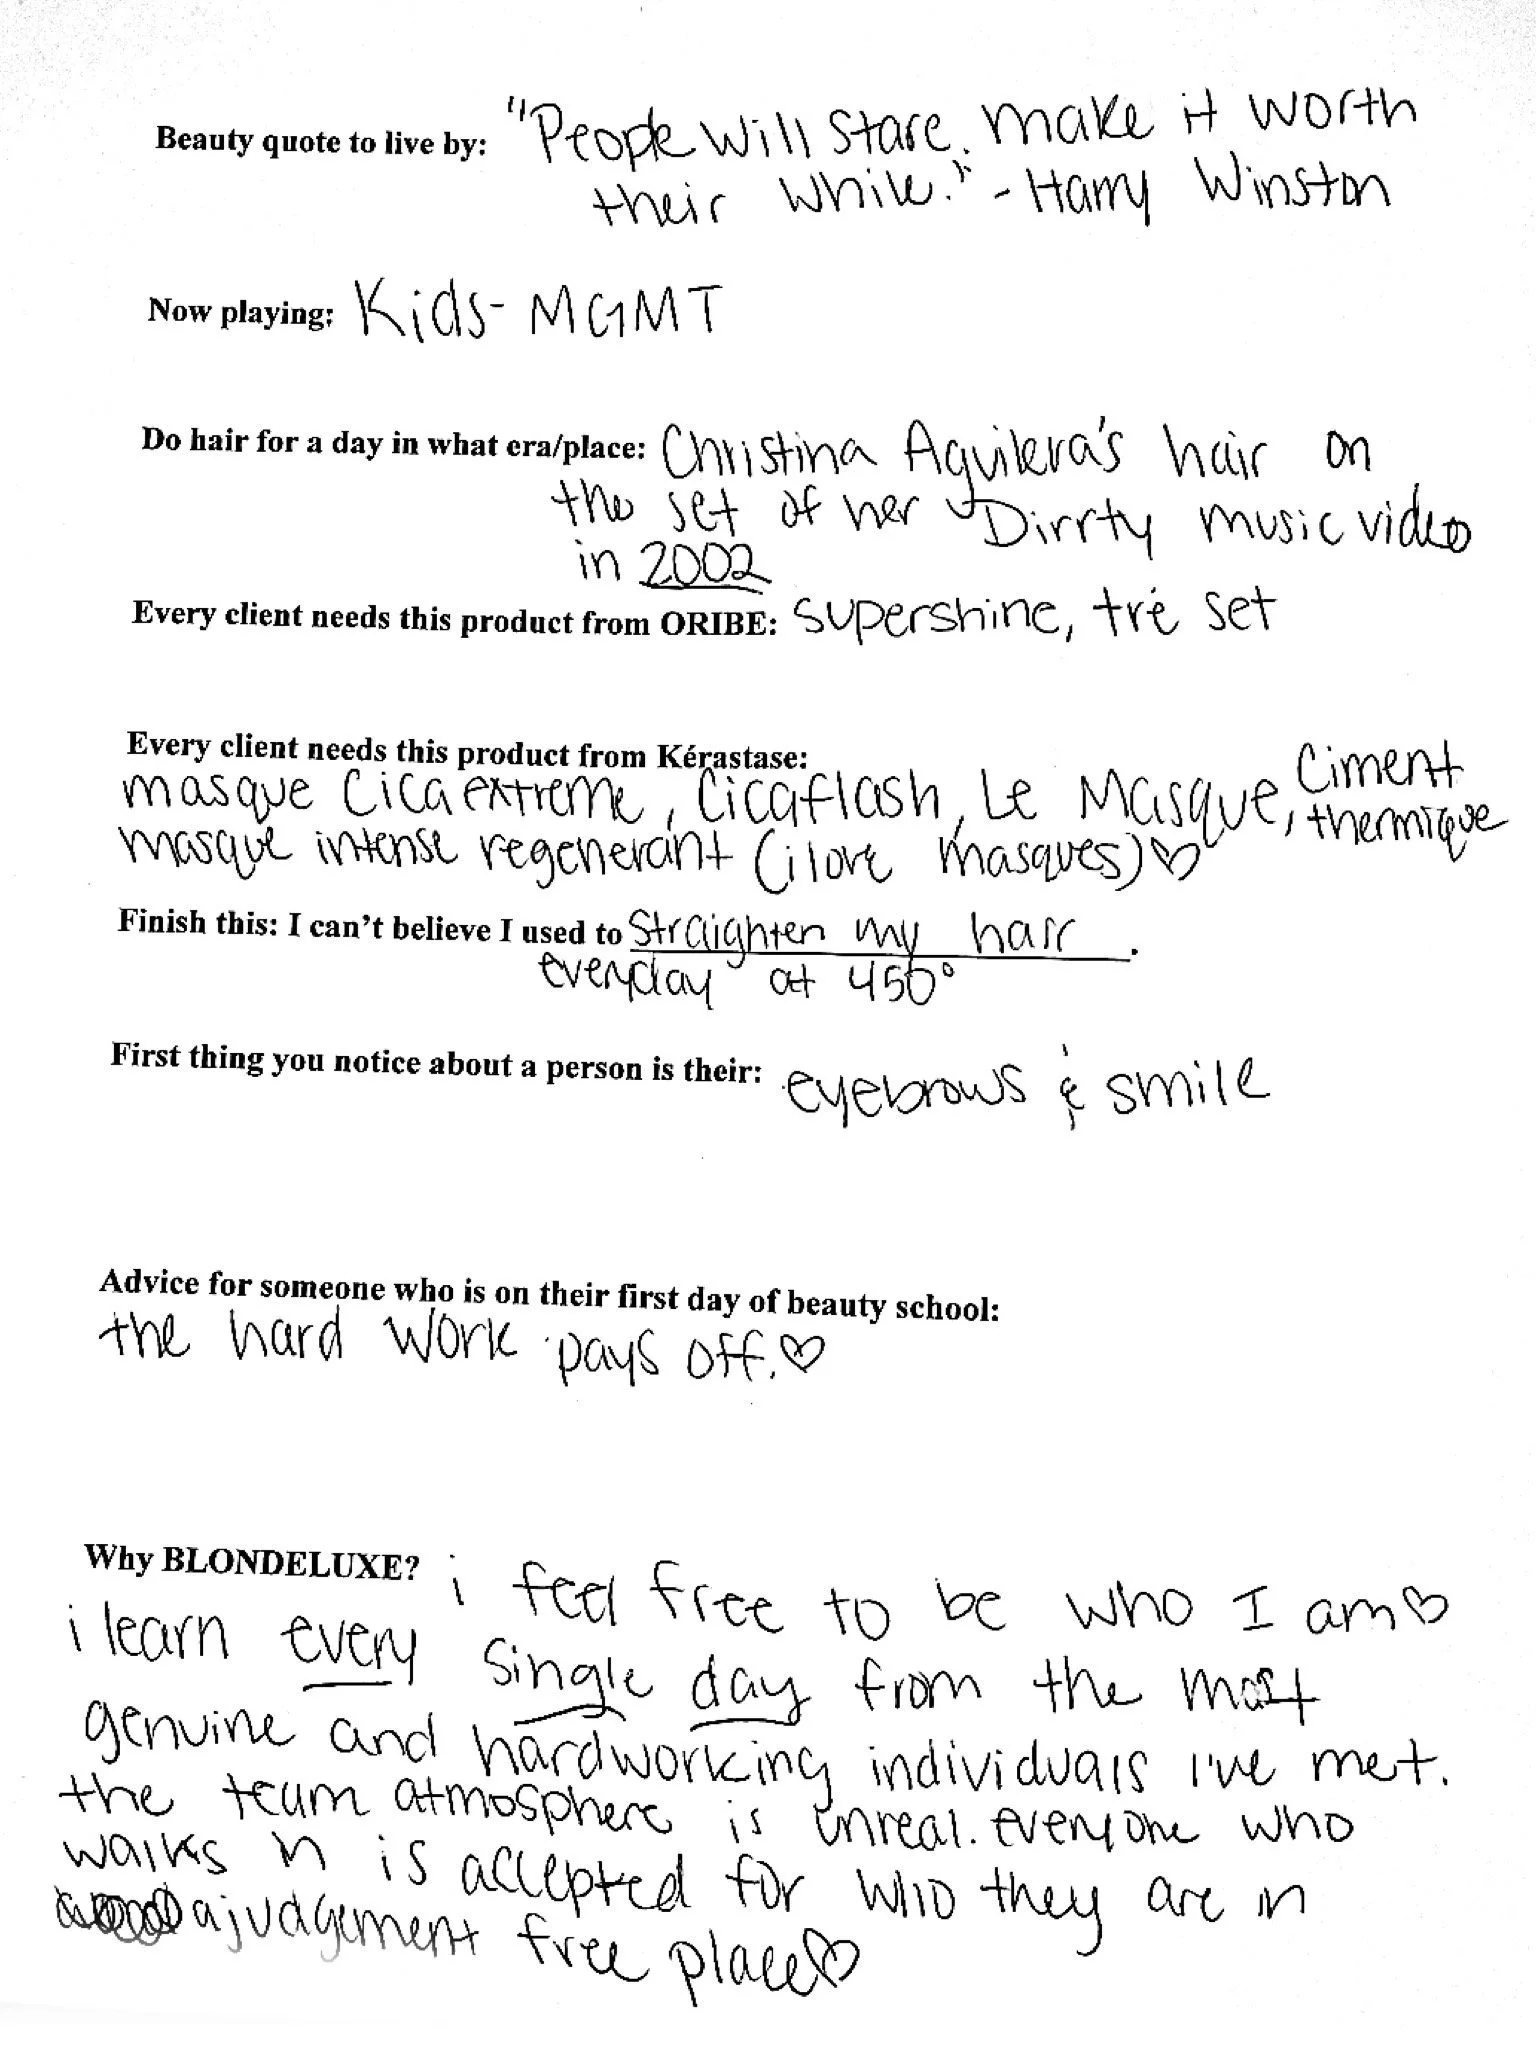 Beauty quote to live by: "People will stare. make it worth
their while." - Harry Winston
Now playing: Kids - MGMT
Do hair for a day in what era/place: Christina Aguilera's hair on
the set of her Dirrty music video
in 2002
Every client needs this product from ORIBE: supershine, tré set
Every client needs this product from Kérastase:
masque Cicaextreme, Cicaflash, Le Masque, Ciment thermique
masque intense regenerant (i love masques) ♡
Finish this: I can't believe I used to straighten my hair.
everyday at 450°
First thing you notice about a person is their: eyebrows & smile
Advice for someone who is on their first day of beauty school:
the hard work pays off. ♡
Why BLONDELUXE? i feel free to be who I am ♡
i learn every single day from the most
genuine and hardworking individuals I've met.
the team atmosphere is unreal. everyone who
walks in is accepted for who they are in
a judgement free place ♡